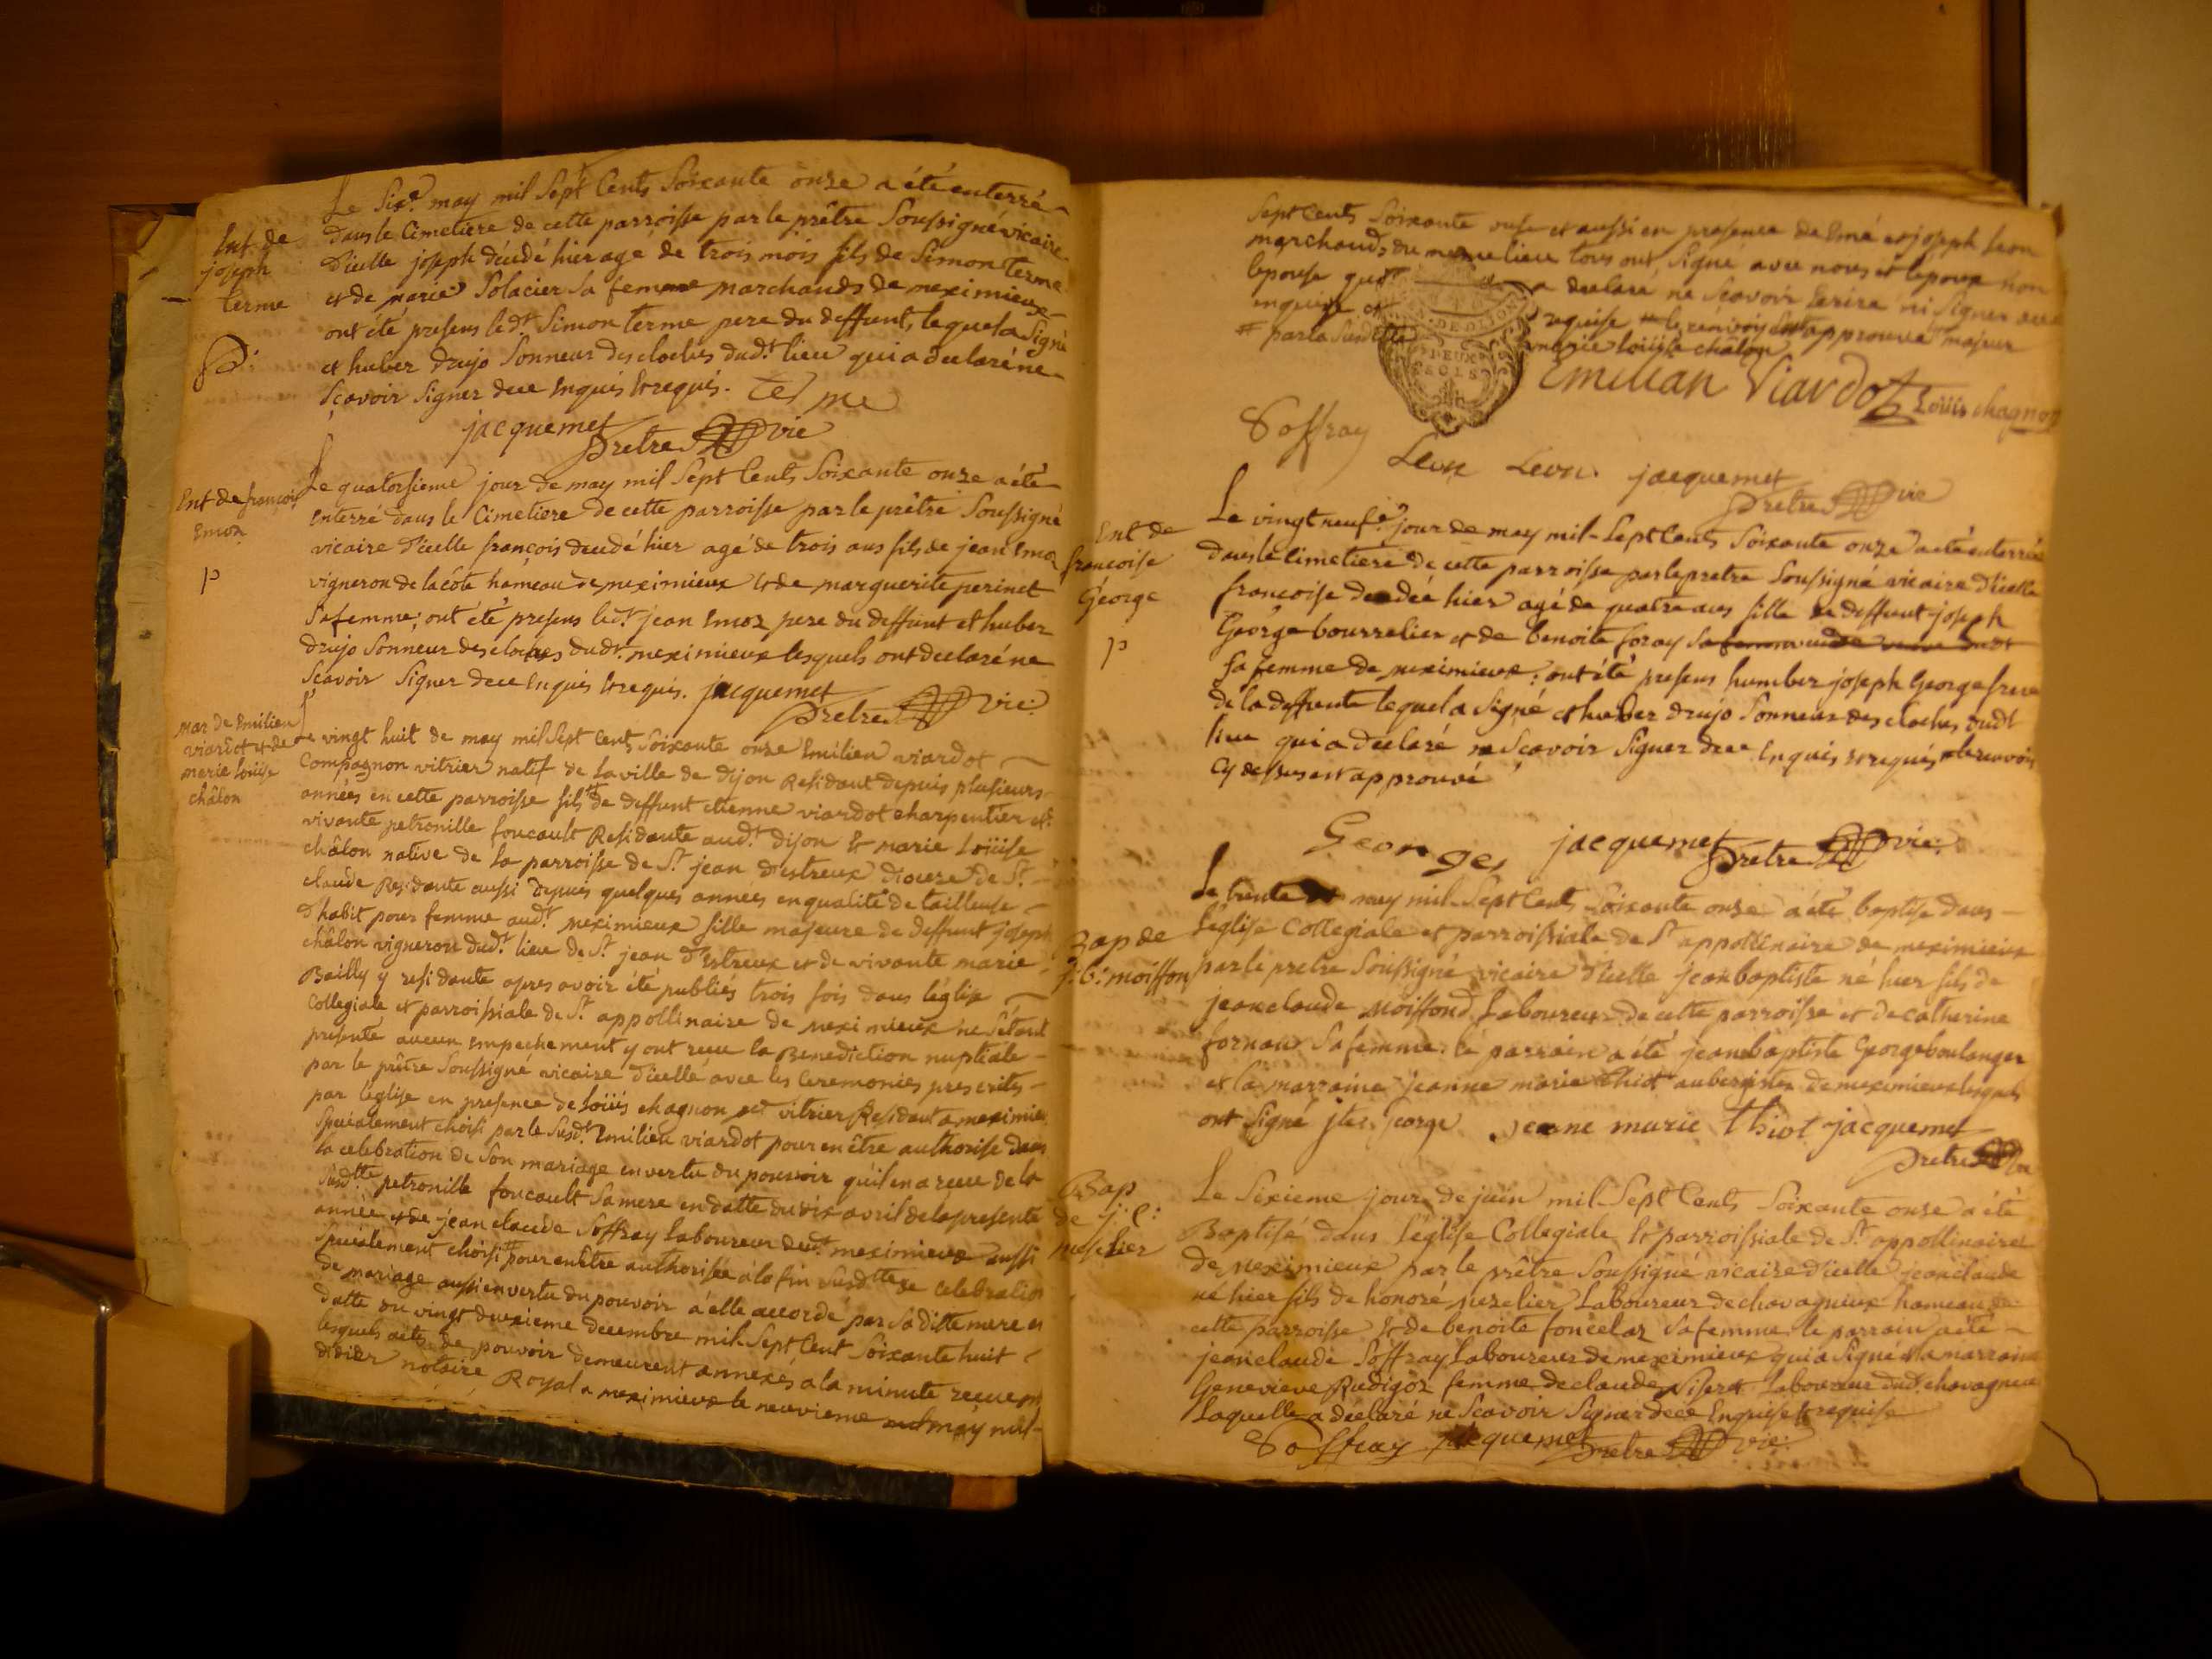 Le Sixe may mil Sept Cents Soixante onze a été enterré
dans le Cimetiere de cette parroisse par le prêtre Soussigné vicaire
d'icelle joseph décédé hier agé de trois mois fils de Simon terme
et de marie Solacier Sa femme marchands de meximieux
ont été presens led.t Simon terme pere du deffunt, lequel a Signé
et huber drujo Sonneur des cloches dud.t lieu qui a declaré ne
Sçavoir Signer dece Enquis et requis. Terme
jacquemet
pretre vic
Ent. de
joseph
terme
Le quatorsieme jour de may mil Sept Cents Soixante onze a été
enterré dans le Cimetiere de cette parroisse par le prêtre Soussigné
vicaire d'icelle françois decedé hier agé de trois ans fils de jean Emoz
vigneron de la côte hameau de meximieux et de marguerite perinet
Sa femme; ont été presens led.t jean Emoz pere du deffunt et huber
drujo Sonneur des cloches dud.t meximieux lesquels ont declaré ne
Scavoir Signer dece Enquis et requis. jacquemet
pretre vic.
Ent de françois
Emoz
p
Le vingt huit de may mil Sept Cents Soixante onze Emilien viardot
Compagnon vitrier natif de la ville de dijon Residant depuis plusieurs
années en cette parroisse fils de deffunt etienne viardot charpentier et
vivante petronille foucault Residante aud.t dijon & marie Loüise
châlon native de la parroisse de S.t jean d'estreux diocese de S.t
claude Residante aussi depuis quelques années en qualité de tailleuse
d'habit pour femme aud.t meximieux fille majeure de deffunt joseph
châlon vigneron dud.t lieu de S.t jean d'Estreux et de vivante marie
Bailly y residante apres avoir été publiés trois fois dans l'église
Collegiale et parroissiale de S.t appollinaire de meximieux ne S'étant
presenté aucun Empechement y ont recu la Benediction nuptiale
par le prêtre Soussigné vicaire d'icelle avec les Ceremonies prescrites
par l'église en presence de Loüis chagnon vitrier Residant a meximieux
Specialement choisi par le Susd.t Emilien viardot pour en être authorise dans
la celebration de Son mariage en vertu du pouvoir qu'il en a recu de la
Susd.tte petronille foucault Sa mere en datte du six avril de la presente
année et de jean claude Soffray Laboureur dud.t meximieux aussi
Specialement choisi pour en être authorisée a la fin Susd.tte de celebration
de mariage aussi en vertu du pouvoir a elle accordé par Sa ditte mere en
datte du vingt deuxieme decembre mil Sept Cent Soixante huit
lesquels actes de pouvoir demeurent annexés a la minute recue par
didier notaire Royal a meximieux le neuvieme may mil
mar de Emilien
viardot et de
marie Loüise
châlon
Sept Cents Soixante onse et aussi en presence de Emé et joseph Leon
marchands du meme lieu tous ont Signé avec nous et lepoux non
lepouse qui a declaré ne Scavoir Ecrire ni Signer
enquise et requise le renvois approuvé majeur
# par la Susd.tte marie Loüise châlon
Emilian Viardot Loüis chagnon
Soffray
Leon Leon. jacquemet
pretre vic
Le vingt neuf.e jour de may mil Sept Cents Soixante onze a été enterrée
dans le cimetiere de cette parroisse par le pretre Soussigné vicaire d'icelle
francoise decedée hier agé de quatre ans fille de deffunt joseph
George bourrelier et de benoite foray
Sa femme de meximieux; ont été presens humber joseph George frere
de la deffunte lequel a Signé et huber drujo Sonneur des cloches dud.t
lieu qui a declaré ne Scavoir Signer dece Enquis et requis le renvois
cy dessus est approuvé
Georges jacquemet
pretre vic.
Ent de
francoise
George
p
Le trente may mil Sept Cents Soixante onze a été baptise dans
l'église Collegiale et parroissiale de S.t appollinaire de meximieux
par le pretre Soussigné vicaire d'icelle jean baptiste né hier fils de
jean claude Moiffond Laboureur de cette parroisse et de catherine
fornau Sa femme. le parrain a été jean baptiste George boulanger
et la marraine jeanne marie thiot aubergistes de meximieux lesquels
ont Signé jeorge jeanne marie thiot jacquemet
pretre vic
Bap de
j: b: moiffon
Le Sixieme jour de juin mil Sept Cents Soixante onze a été
Baptisé dans l'église Collegiale & parroissiale de S.t appollinaire
de meximieux par le prêtre Soussigné vicaire d'icelle jean claude
né hier fils de honoré Laboureur de chavagnieux hameau de
cette parroisse & de benoite foncelaz Sa femme. le parrain a été
jean claude Soffray Laboureur de meximieux qui a Signé et la marraine
Genevieve Rudigoz femme de claude Nisert Laboureur dud.t chavagneux
Laquelle a déclaré ne Scavoir Signer dece Enquise & requise
Soffray jacquemet pretre vic.
Bap
de j: c: